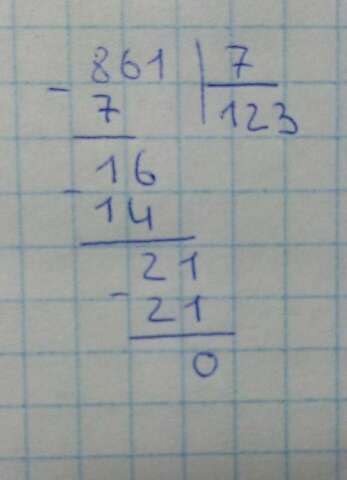 861 7
- 7 123
16
- 14
21
- 21
0